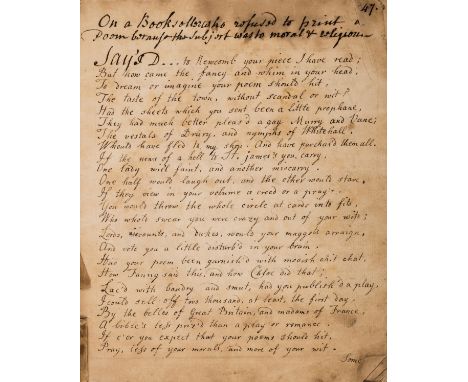 47
On a Bookseller who refused to print a
Poem because the subject was to moral & religious
SAys D.... to Newcomb your piece I have read;
But how came the fancy and whim in your head,
To dream or imagine your poem should hit,
The taste of the town, without scandal or wit?
Had the sheets which you sent been a little prophane,
They had much better pleas'd a gay Murry and Vane;
The vestals of Drury, and nymphs of Whitehall
Whou'd have fled to my shop. And have purchas'd them all.
If the news of a hell to St. James's you carry,
One lady will faint, and another miscarry
One half would laugh out, and the other would stare,
If they view in your volume a creed or a pray'r.
You would throw the whole circle at cards into fits,
Who whole swear you were crazy and out of your wits;
Lords, viscounts, and dukes, would your maggots arraign,
And vote you a little disturb'd in your brain.
Had your poem been garnish'd with modish chit chat,
How Fanny said this, and how Chloe did that;
Lac'd with baudry and smut, had you publish'd a play,
I could sell off two thousand, at least, the first day,
By the belles of Great Britain, and madams of France,
A bible's less priz'd than a play or romance.
If e'er you expect that your poems should hit,
Pray, less of your morals, and more of your wit.
Some